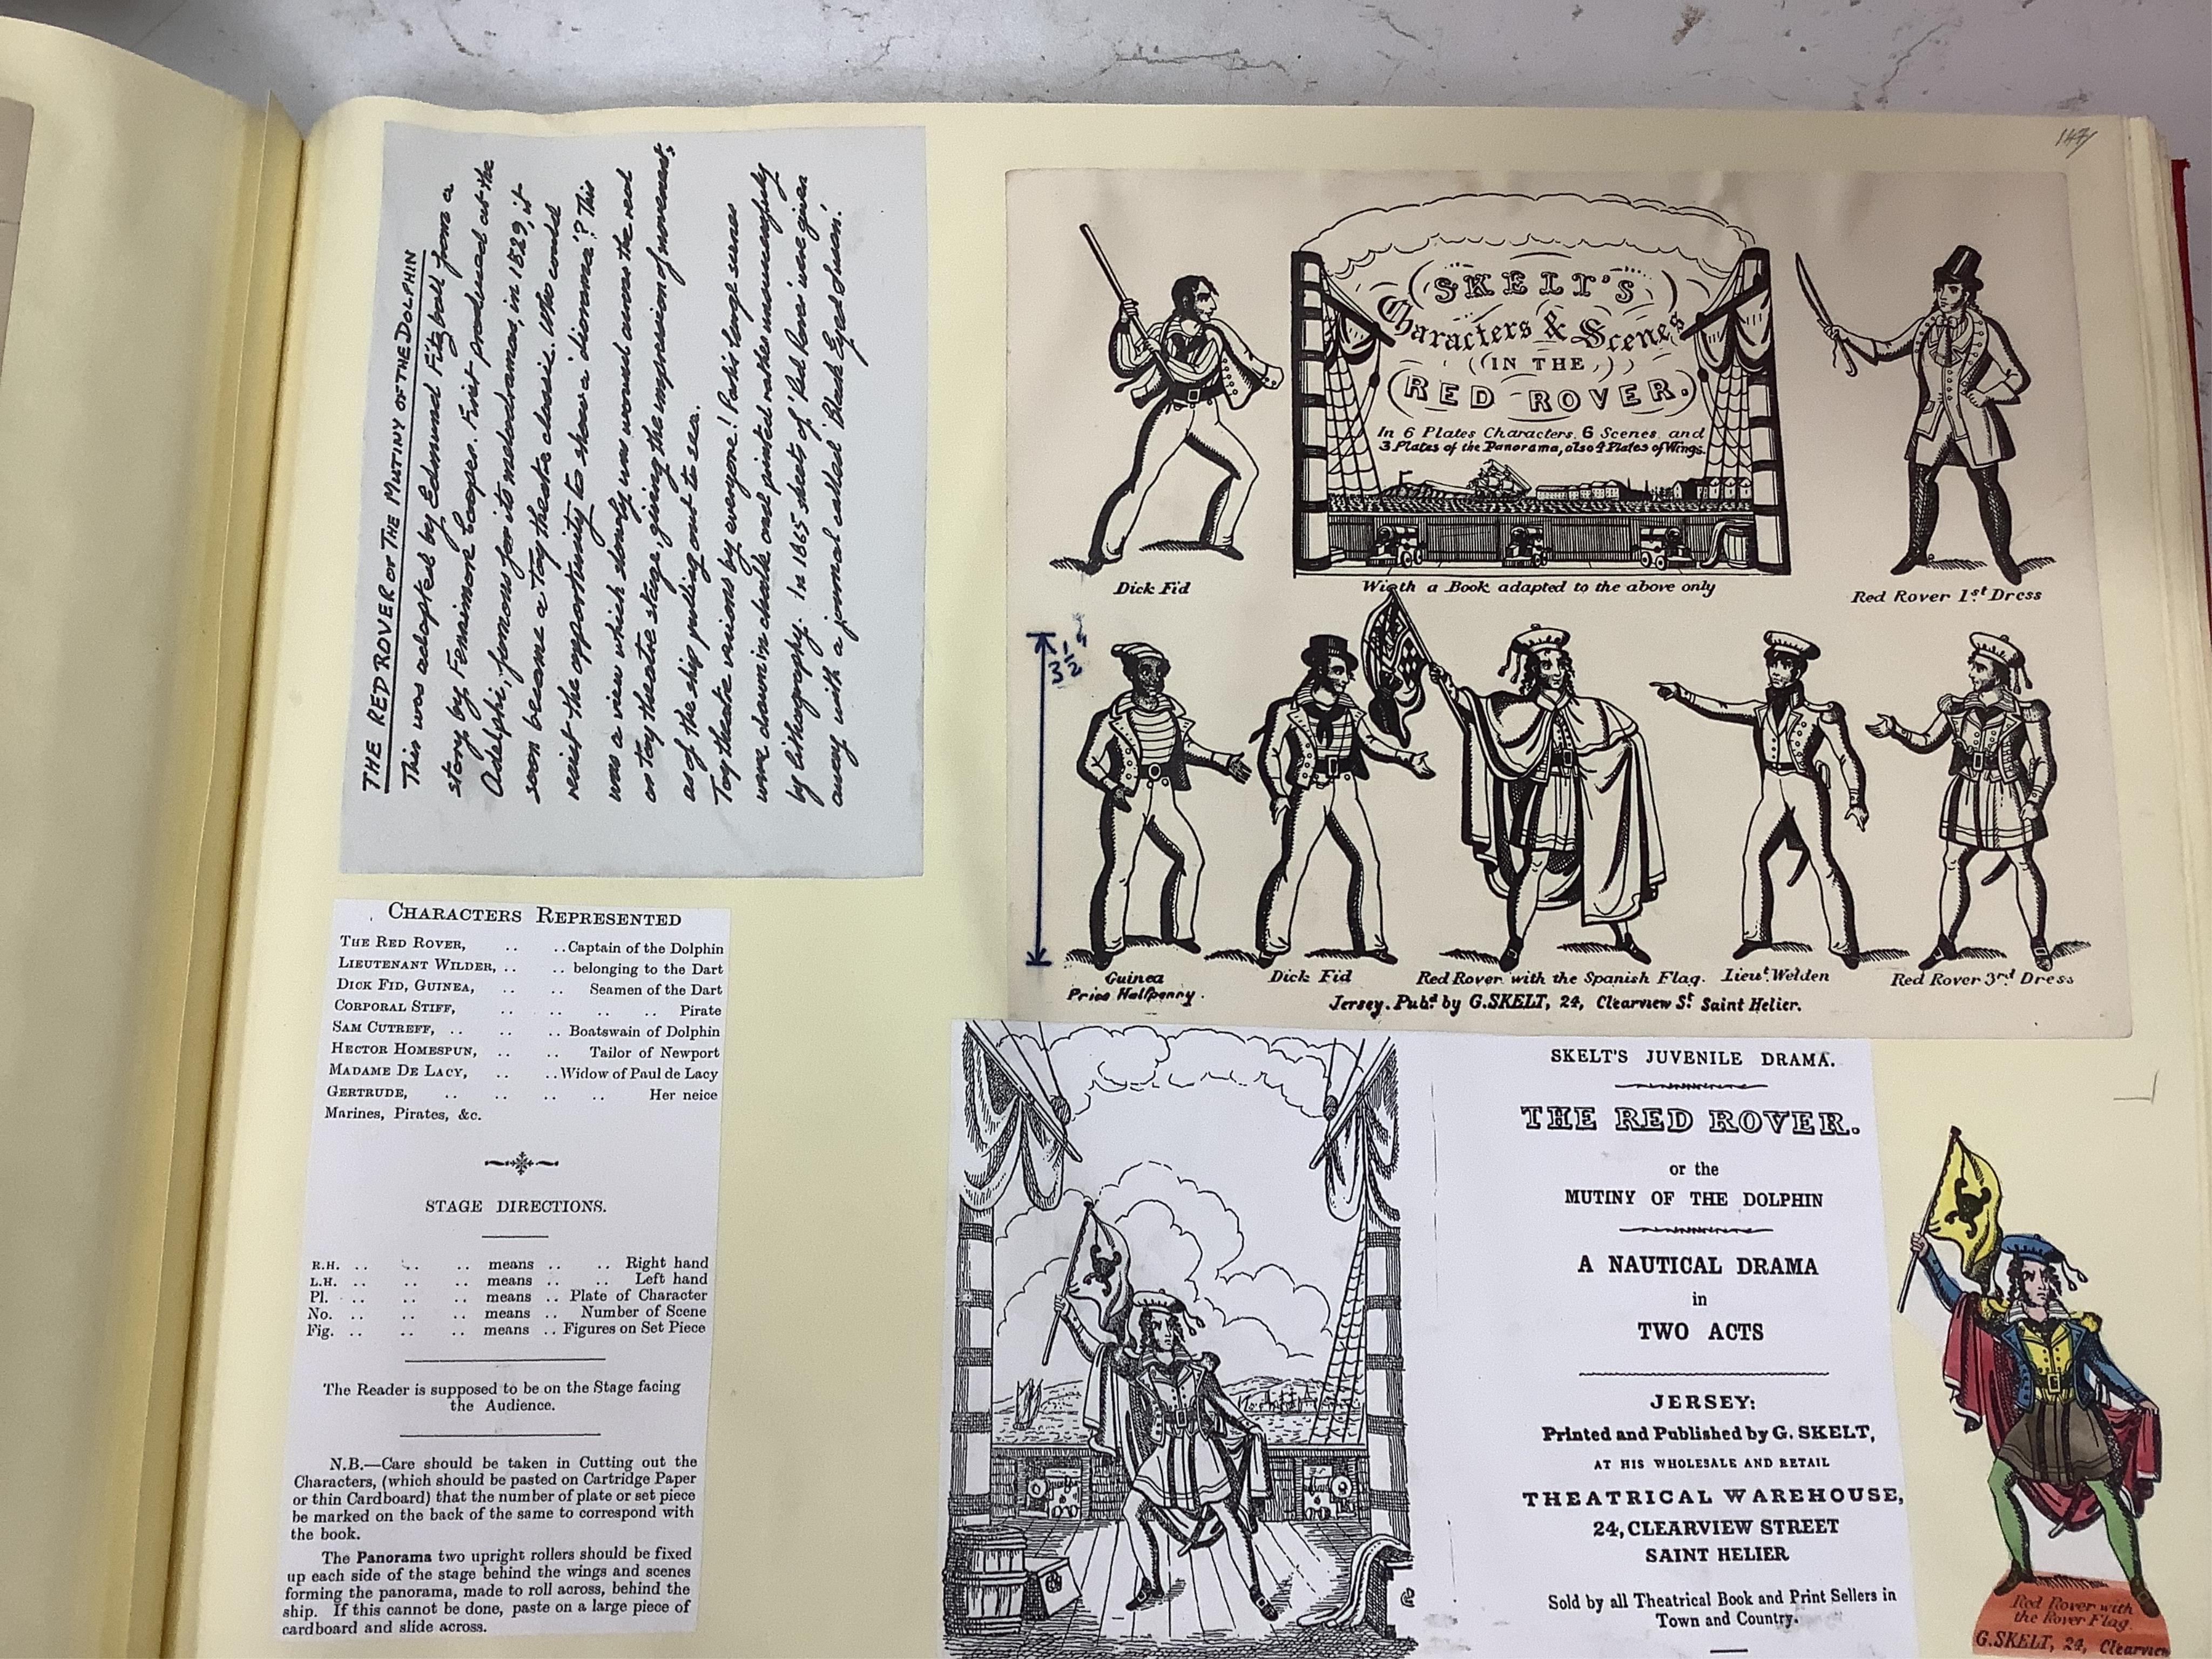 THE RED ROVER or THE MUTINY OF THE DOLPHIN
This was adapted by Edmund Fitzball from a
story by Fennimore Cooper. First produced at the
Adelphi, famous for its melodramas, in 1829, it
soon became a Toy theatre classic. Who could
resist the opportunity to show a 'diorama'? This
was a view which slowly was wound across the real
or toy theatre stage, giving the impression of movement,
as of the ship pulling out to sea.
Toy theatre versions by everyone! Park's large scenes
were drawn in chalk and printed rather unsuccessfully
by lithography. In 1865 sheets of 'Red Rover' were given
away with a journal called 'Black Eyed Susan'.
CHARACTERS REPRESENTED
THE RED ROVER, .. ..Captain of the Dolphin
LIEUTENANT WILDER, .. .. belonging to the Dart
DICK FID, GUINEA, .. .. Seamen of the Dart
CORPORAL STIFF, .. .. .. .. Pirate
SAM CUTREFF, .. .. Boatswain of Dolphin
HECTOR HOMESPUN, .. .. Tailor of Newport
MADAME DE LACY, .. ..Widow of Paul de Lacy
GERTRUDE, .. .. .. .. Her neice
Marines, Pirates, &c.
STAGE DIRECTIONS.
R.H. .. .. .. means .. .. Right hand
L.H. .. .. .. means .. .. Left hand
Pl. .. .. .. means .. Plate of Character
No. .. .. .. means .. Number of Scene
Fig. .. .. .. means .. Figures on Set Piece
The Reader is supposed to be on the Stage facing
the Audience.
N.B.—Care should be taken in Cutting out the
Characters, (which should be pasted on Cartridge Paper
or thin Cardboard) that the number of plate or set piece
be marked on the back of the same to correspond with
the book.
The Panorama two upright rollers should be fixed
up each side of the stage behind the wings and scenes
forming the panorama, made to roll across, behind the
ship. If this cannot be done, paste on a large piece of
cardboard and slide across.
SKELT'S
Characters & Scenes
(IN THE)
RED ROVER.
In 6 Plates Characters, 6 Scenes, and
3 Plates of the Panorama, also 4 Plates of Wings.
Dick Fid
Wieth a Book adapted to the above only
Red Rover 1st Dress
3 1/2"
Guinea
Dick Fid
Red Rover with the Spanish Flag.
Lieut. Welden
Red Rover 3rd Dress
Price Halfpenny.
Jersey. Pubd. by G. SKELT, 24, Clearview St. Saint Helier.
SKELT'S JUVENILE DRAMA.
THE RED ROVER.
or the
MUTINY OF THE DOLPHIN
A NAUTICAL DRAMA
in
TWO ACTS
JERSEY:
Printed and Published by G. SKELT,
AT HIS WHOLESALE AND RETAIL
THEATRICAL WAREHOUSE,
24, CLEARVIEW STREET
SAINT HELIER
Sold by all Theatrical Book and Print Sellers in
Town and Country.
Red Rover with
the Rover Flag.
G. SKELT, 24, Clearview